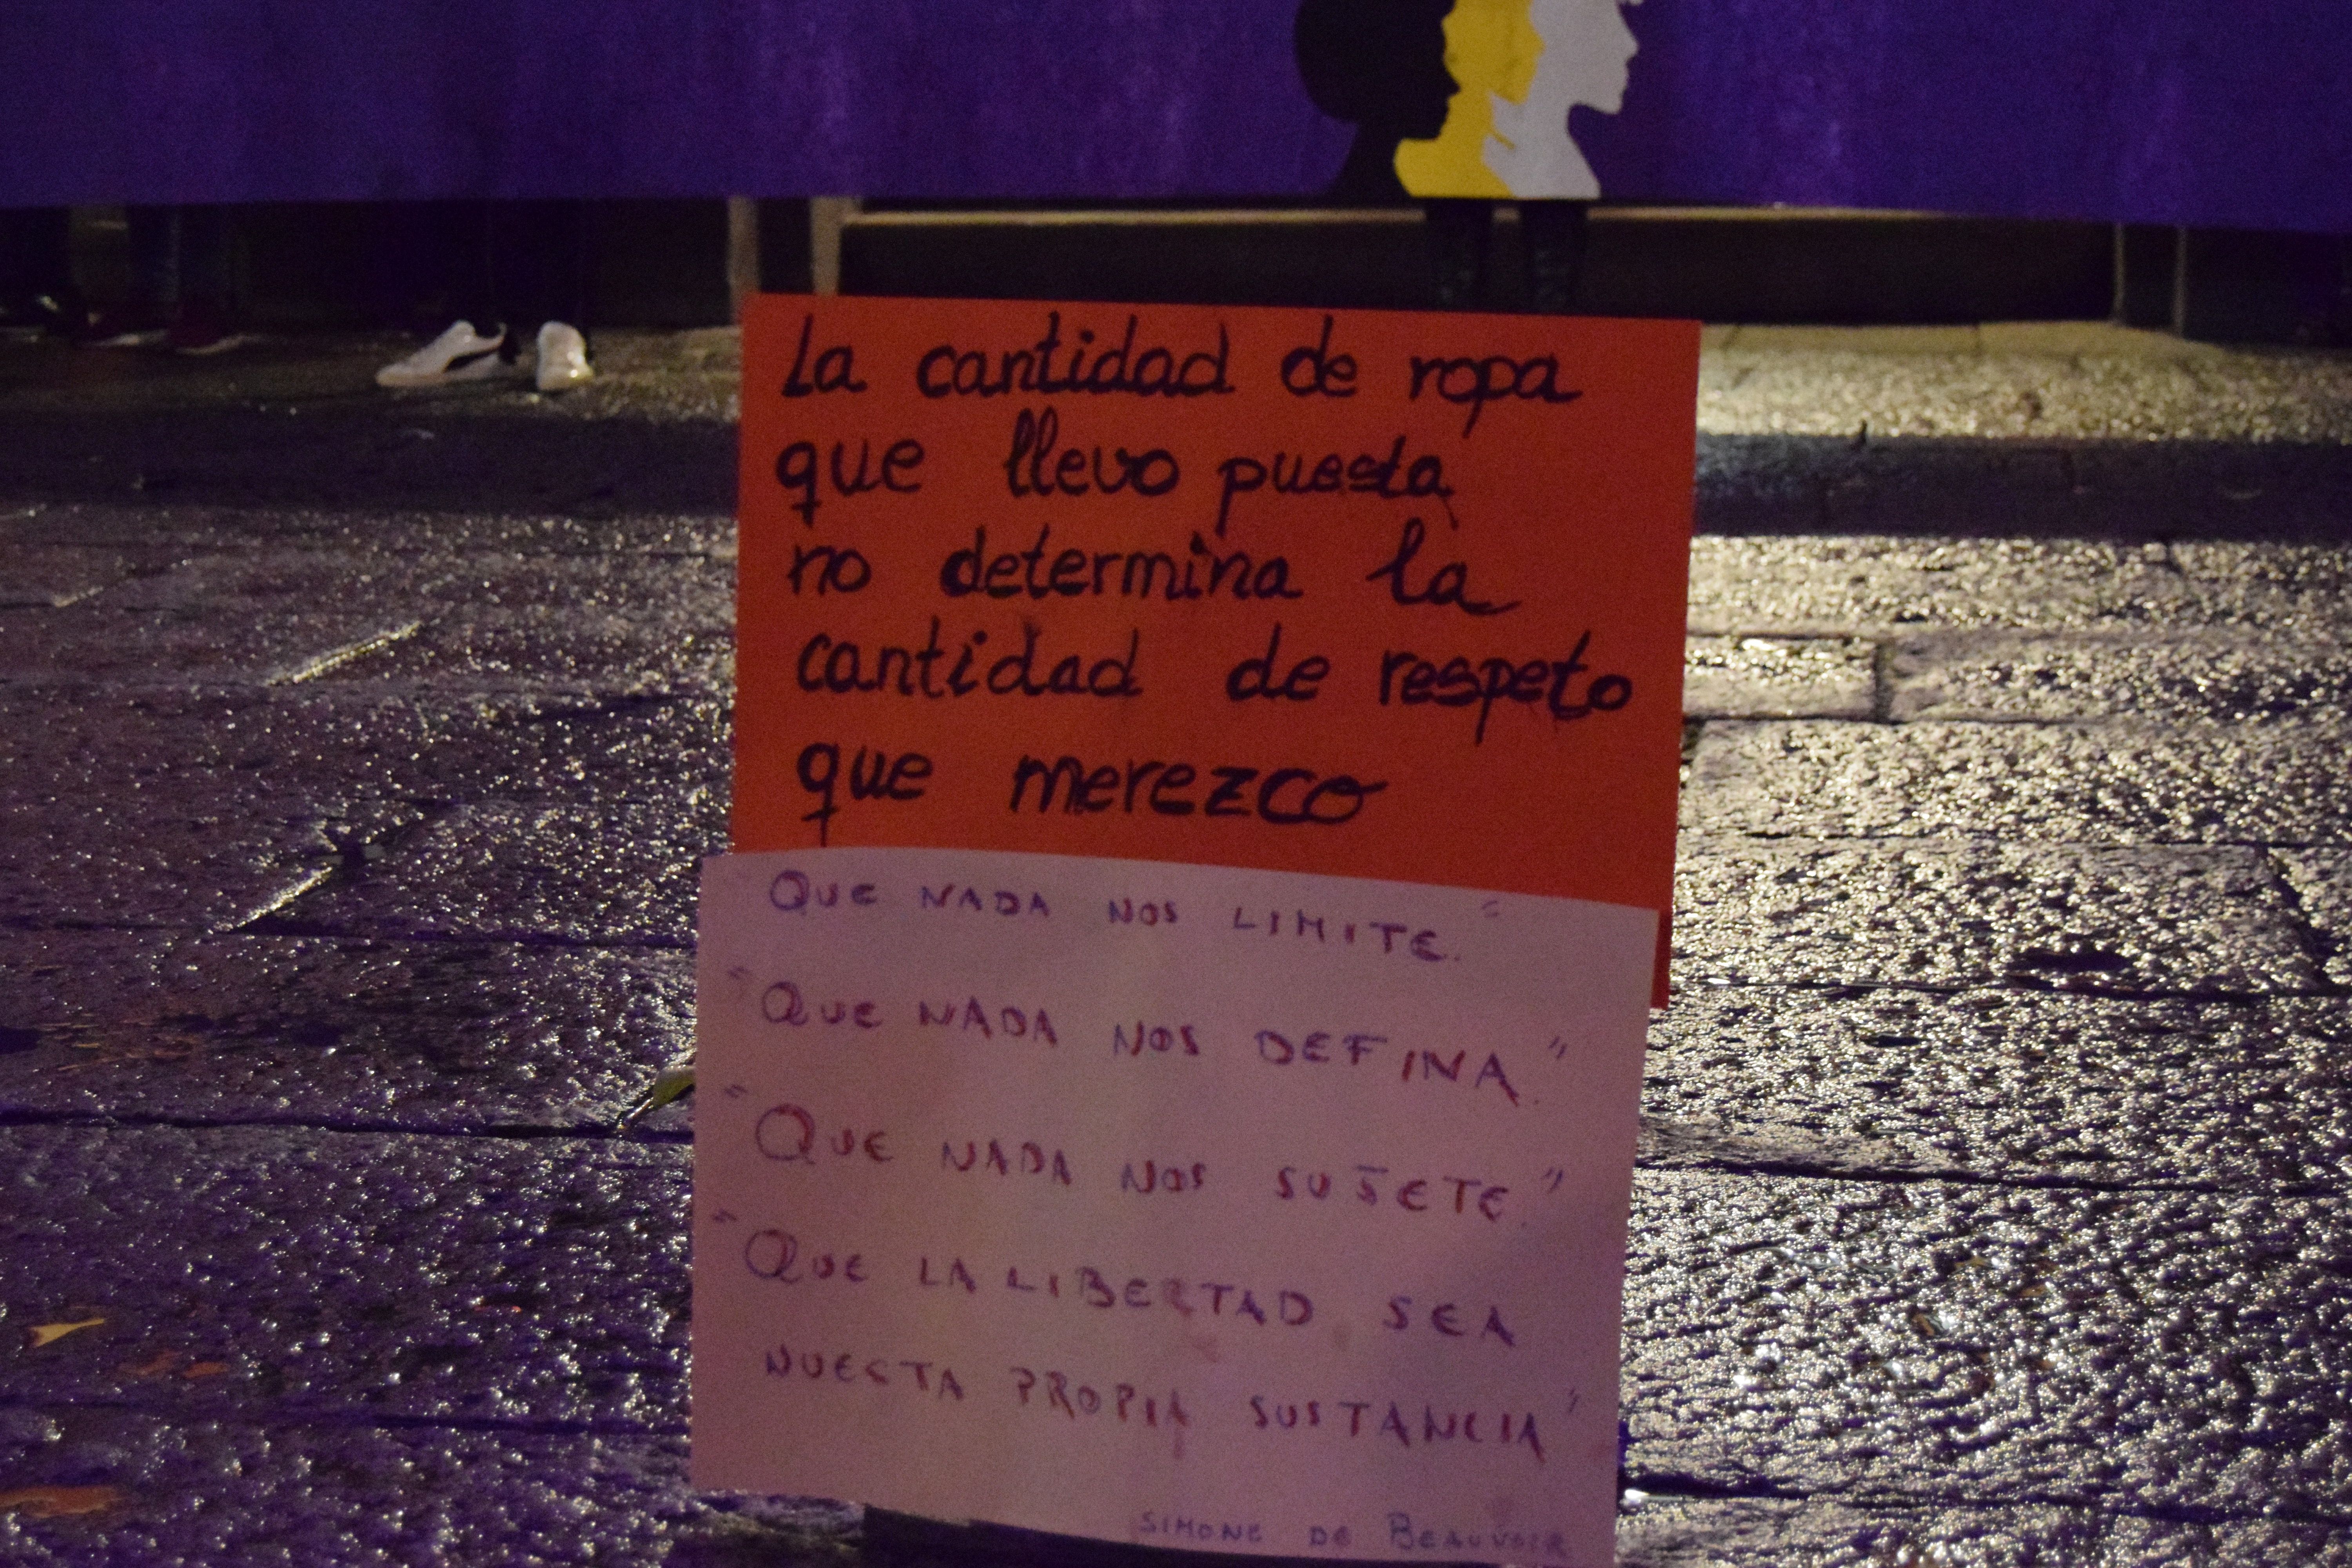 La cantidad de ropa
que llevo puesta
no determina la
cantidad de respeto
que merezco
QUE NADA NOS LIMITE."
"QUE NADA NOS DEFINA."
"QUE NADA NOS SUJETE."
"QUE LA LIBERTAD SEA
NUESTA PROPIA SUSTANCIA"
SIMONE DE BEAUVOIR